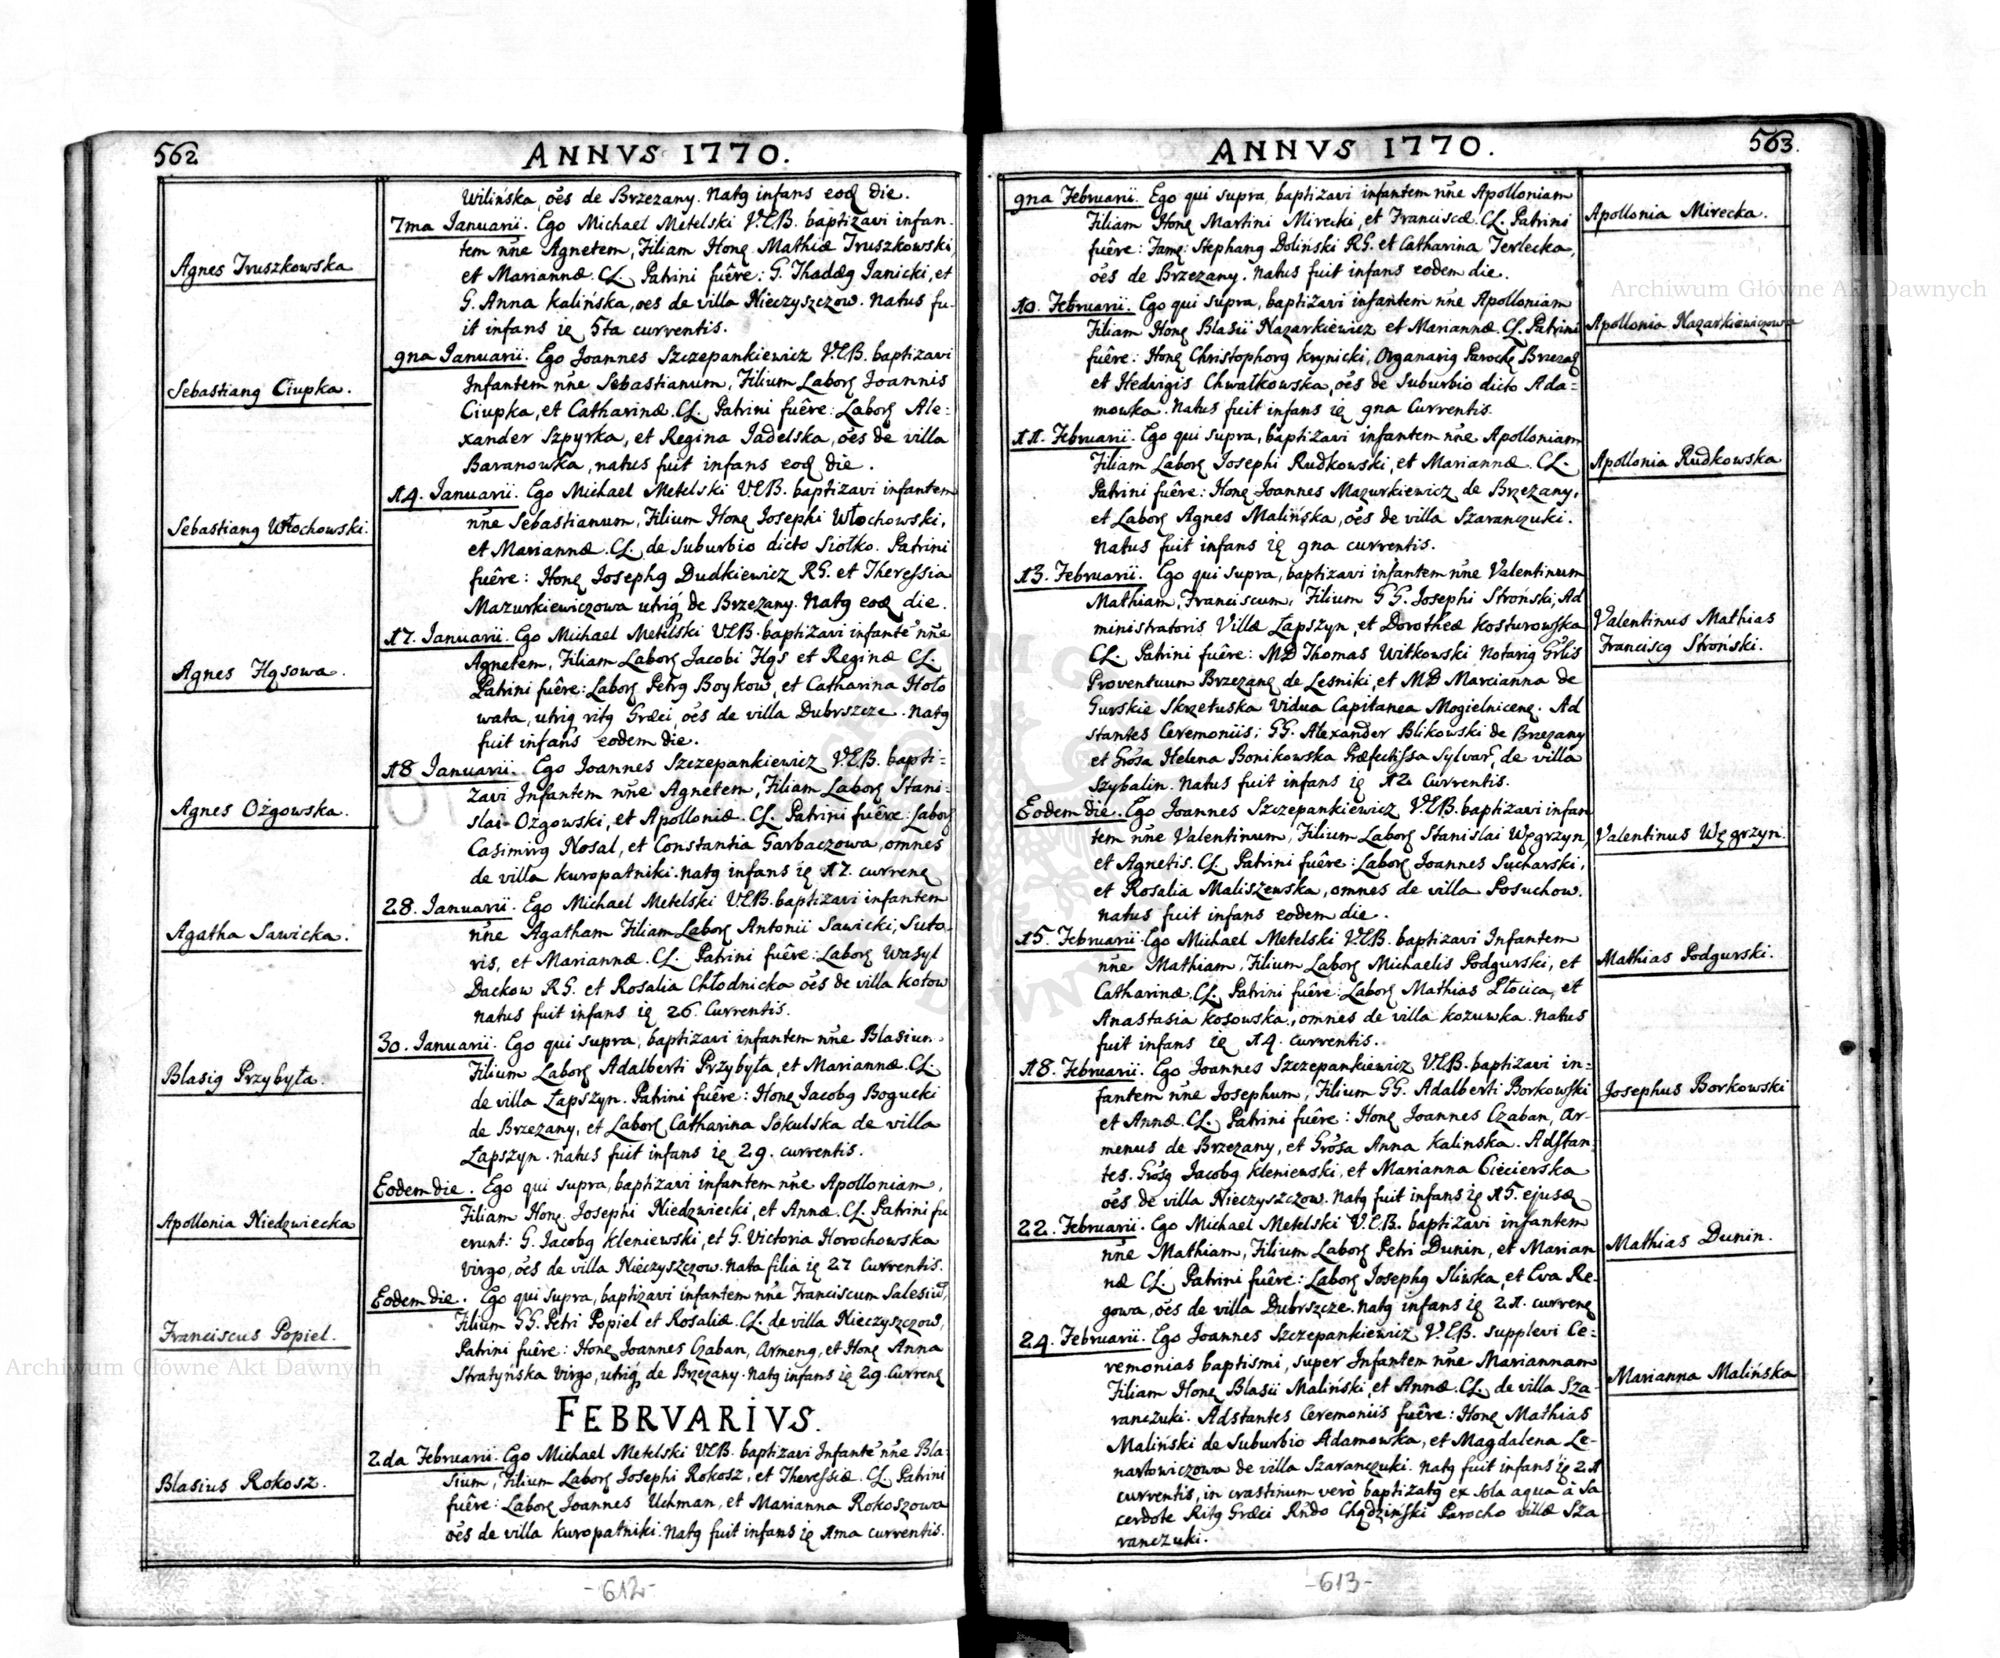 562
ANNVS 1770.
Wilińska, oēs de Brzezany. Natꝯ infans eod die.
7ma Januarii. Ego Michael Metelski V.C.B. baptizavi infan-
Agnes Truszkowska
tem nn̄e Agnetem, Filiam Hon Mathiæ Truszkowski,
et Mariannæ. CL. Patrini fuêre: G. Thadæꝯ Janicki, et
G. Anna Kalińska, oes de villa Nieczyszczow. Natus fu-
it infans ie 5ta currentis.
9na Januarii. Ego Joannes Szczepankiewicz V.C.B. baptizavi
Sebastianꝯ Ciupka.
Infantem nn̄e Sebastianum, Filium Labor Joannis
Ciupka, et Catharinæ. CL. Patrini fuêre: Labor Ale:
xander Szpyrka, et Regina Jadelska, oēs de villa
Baranowka, natus fuit infans eod die.
14. Januarii. Ego Michael Metelski V.C.B. baptizavi infantem
Sebastianꝯ Włochowski.
nn̄e Sebastianum, Filium Hon Josephi Włochowski,
et Mariannæ. CL. de Suburbio dicto Siołko. Patrini
fuêre: Hon Josephꝯ Dudkiewicz R.G. et Theressia
Mazurkiewiczowa utriꝯ de Brzezany. Natꝯ eod die.
17. Januarii. Ego Michael Metelski V.C.B. baptizavi infantē nn̄e
Agnes Hꝯsowa.
Agnetem, Filiam Labor Jacobi Hꝯs et Reginæ CL.
Patrini fuêre: Labor Petrꝯ Boykow, et Catharina Holo
wata, utriꝯ ritꝯ Græci oēs de villa Dubrszcze. Natꝯ
fuit infans eodem die.
18 Januarii. Ego Joannes Szczepankiewicz V.C.B. bapti-
Agnes Ożgowska.
zavi Infantem nn̄e Agnetem, Filiam Labor Stani-
slai Ożgowski, et Apolloniæ. CL. Patrini fuêre: Labor
Casimirꝯ Nosal, et Constantia Garbaczowa, omnes
de villa Kuropatniki. Natꝯ infans ie 17. curren
28. Januarii. Ego Michael Metelski V.C.B. baptizavi infantem
Agatha Sawicka.
nn̄e Agatham Filiam Labor Antonii Sawicki, Suto-
ris, et Mariannæ. CL. Patrini fuêre: Labor Wasyl
Dackow R.G. et Rosalia Chłodnicka oēs de villa Kotow
natus fuit infans ie 26. Currentis.
30. Januarii. Ego qui supra, baptizavi infantem nn̄e Blasium.
Blasiꝯ Przybyła.
Filium Labor Adalberti Przybyła, et Mariannæ. CL.
de villa Łapszyn. Patrini fuêre: Hon Jacobꝯ Bogucki
de Brzezany, et Labor Catharina Sokulska de villa
Łapszyn. natus fuit infans ie 29. currentis.
Eodem die. Ego qui supra, baptizavi infantem nn̄e Apolloniam,
Apollonia Niedzwiecka
Filiam Hon Josephi Niedzwiecki, et Annæ. CL. Patrini fu
erunt: G. Jacobꝯ Kleniewski, et G. Victoria Horochowska
Virgo, oēs de villa Nieczyszczow. Nata filia ie 27 Currentis.
Eodem die. Ego qui supra, baptizavi infantem nn̄e Franciscum Salesiū,
Franciscus Popiel.
Filium GG. Petri Popiel et Rosaliæ. CL. de villa Nieczyszczow,
Patrini fuêre: Hon Joannes Czaban, Armenꝯ, et Hon Anna
Stratyńska Virgo, utriꝯ de Brzezany. Natꝯ infans ie 29. Curren
FEBRVARIVS.
2da Februarii. Ego Michael Metelski V.C.B. baptizavi Infantē nn̄e Bla-
Blasius Rokosz.
sium, Filium Labor Josephi Rokosz, et Theressiæ. CL. Patrini
fuêre: Labor Joannes Uchman, et Marianna Rokoszowa
oēs de villa Kuropatniki. Natꝯ fuit infans ie 1ma currentis.
-612-
ANNVS 1770.
563.
9na Februarii. Ego qui supra, baptizavi infantem nn̄e Apolloniam
Apollonia Mirecka.
Filiam Hon Martini Mirecki, et Franciscæ. CL. Patrini
fuêre: Fam: Stephanꝯ Doliński R.G. et Catharina Terlecka,
oēs de Brzezany. Natus fuit infans eodem die.
10. Februarii. Ego qui supra, baptizavi infantem nn̄e Apolloniam
Apollonia Nazarkiewiczowa
Filiam Hon Blasii Nazarkiewicz et Mariannæ. CL. Patrini
fuêre: Hon Christophorꝯ Krynicki, Organariꝯ Paroch Brzezaꝯ
et Hedvigis Chwałkowska, oēs de Suburbio dicto Ada-
mowka. Natus fuit infans ie 9na Currentis.
11. Februarii. Ego qui supra, baptizavi infantem nn̄e Apolloniam
Apollonia Rudkowska
Filiam Labor Josephi Rudkowski, et Mariannæ. CL.
Patrini fuêre: Hon Joannes Mazurkiewicz de Brzezany,
et Labor Agnes Malińska, oēs de villa Szaranczuki.
Natus fuit infans ie 9na currentis.
13. Februarii. Ego qui supra, baptizavi infantem nn̄e Valentinum
Valentinus Mathias
Franciscꝯ Stroński.
Mathiam, Franciscum, Filium GG. Josephi Stroński, Ad
ministratoris Villæ Łapszyn, et Dorotheæ Kosturowska
CL. Patrini fuêre: MD Thomas Witkowski Notariꝯ Gr̄lis
Proventuum Brzezan de Lesniki, et MD Marcianna de
Gurskie Skrzetuska Vidua Capitanea Mogielnicen. Ad
stantes Ceremoniis: GG. Alexander Blikowski de Brzezany
et Gr̄osa Helena Bonikowska Præfectissa Sylvar, de villa
Szybalin. Natus fuit infans ie 12 Currentis.
Eodem die. Ego Joannes Szczepankiewicz V.C.B. baptizavi infan
Valentinus Węgrzyn.
tem nn̄e Valentinum, Filium Labor Stanislai Węgrzyn,
et Agnetis. CL. Patrini fuêre: Labor Joannes Sucharski,
et Rosalia Maliszewska, omnes de villa Posuchow.
Natus fuit infans eodem die.
15. Februarii Ego Michael Metelski V.C.B. baptizavi Infantem
Mathias Podgurski.
nn̄e Mathiam, Filium Labor Michaelis Podgurski, et
Catharinæ. CL. Patrini fuêre: Labor Mathias Płocica, et
Anastasia Kosowska, omnes de villa Kozuwka. Natus
fuit infans ie 14. currentis.
18. Februarii. Ego Joannes Szczepankiewicz V.C.B. baptizavi in-
Josephus Borkowski
fantem nn̄e Josephum, Filium GG. Adalberti Borkowski
et Annæ. CL. Patrini fuêre: Hon Joannes Czaban, Ar-
menus de Brzezany, et Gr̄osa Anna Kalinska. Adstan-
tes. Gr̄osꝯ Jacobꝯ Kleniewski, et Marianna Ciecierska
oēs de villa Nieczyszczow. Natꝯ fuit infans ie 15. ejusd
22. Februarii. Ego Michael Metelski V.C.B. baptizavi infantem
Mathias Dunin.
nn̄e Mathiam, Filium Labor Petri Dunin, et Marian
næ CL. Patrini fuêre: Labor Josephꝯ Sliwka, et Eva Re-
gowa, oēs de villa Dubrszcze. Natꝯ infans ie 21. curren
24. Februarii. Ego Joannes Szczepankiewicz V.C.B. supplevi Ce-
Marianna Malińska
remonias baptismi, super Infantem nn̄e Mariannam
Filiam Hon Blasii Maliński, et Annæ. CL. de villa Sza-
ranczuki. Adstantes Ceremoniis fuêre: Hon Mathias
Maliński de Suburbio Adamowka, et Magdalena Le-
nartowiczowa de villa Szaranczuki. Natꝯ fuit infans ie 21
currentis, in crastinum verò baptizatꝯ ex sola aqua à Sa
cerdote Ritꝯ Græci Rn̄do Chądzinski Parocho villæ Sza
ranczuki.
-613-
Archiwum Główne Akt Dawnych
Archiwum Główne Akt Dawnych